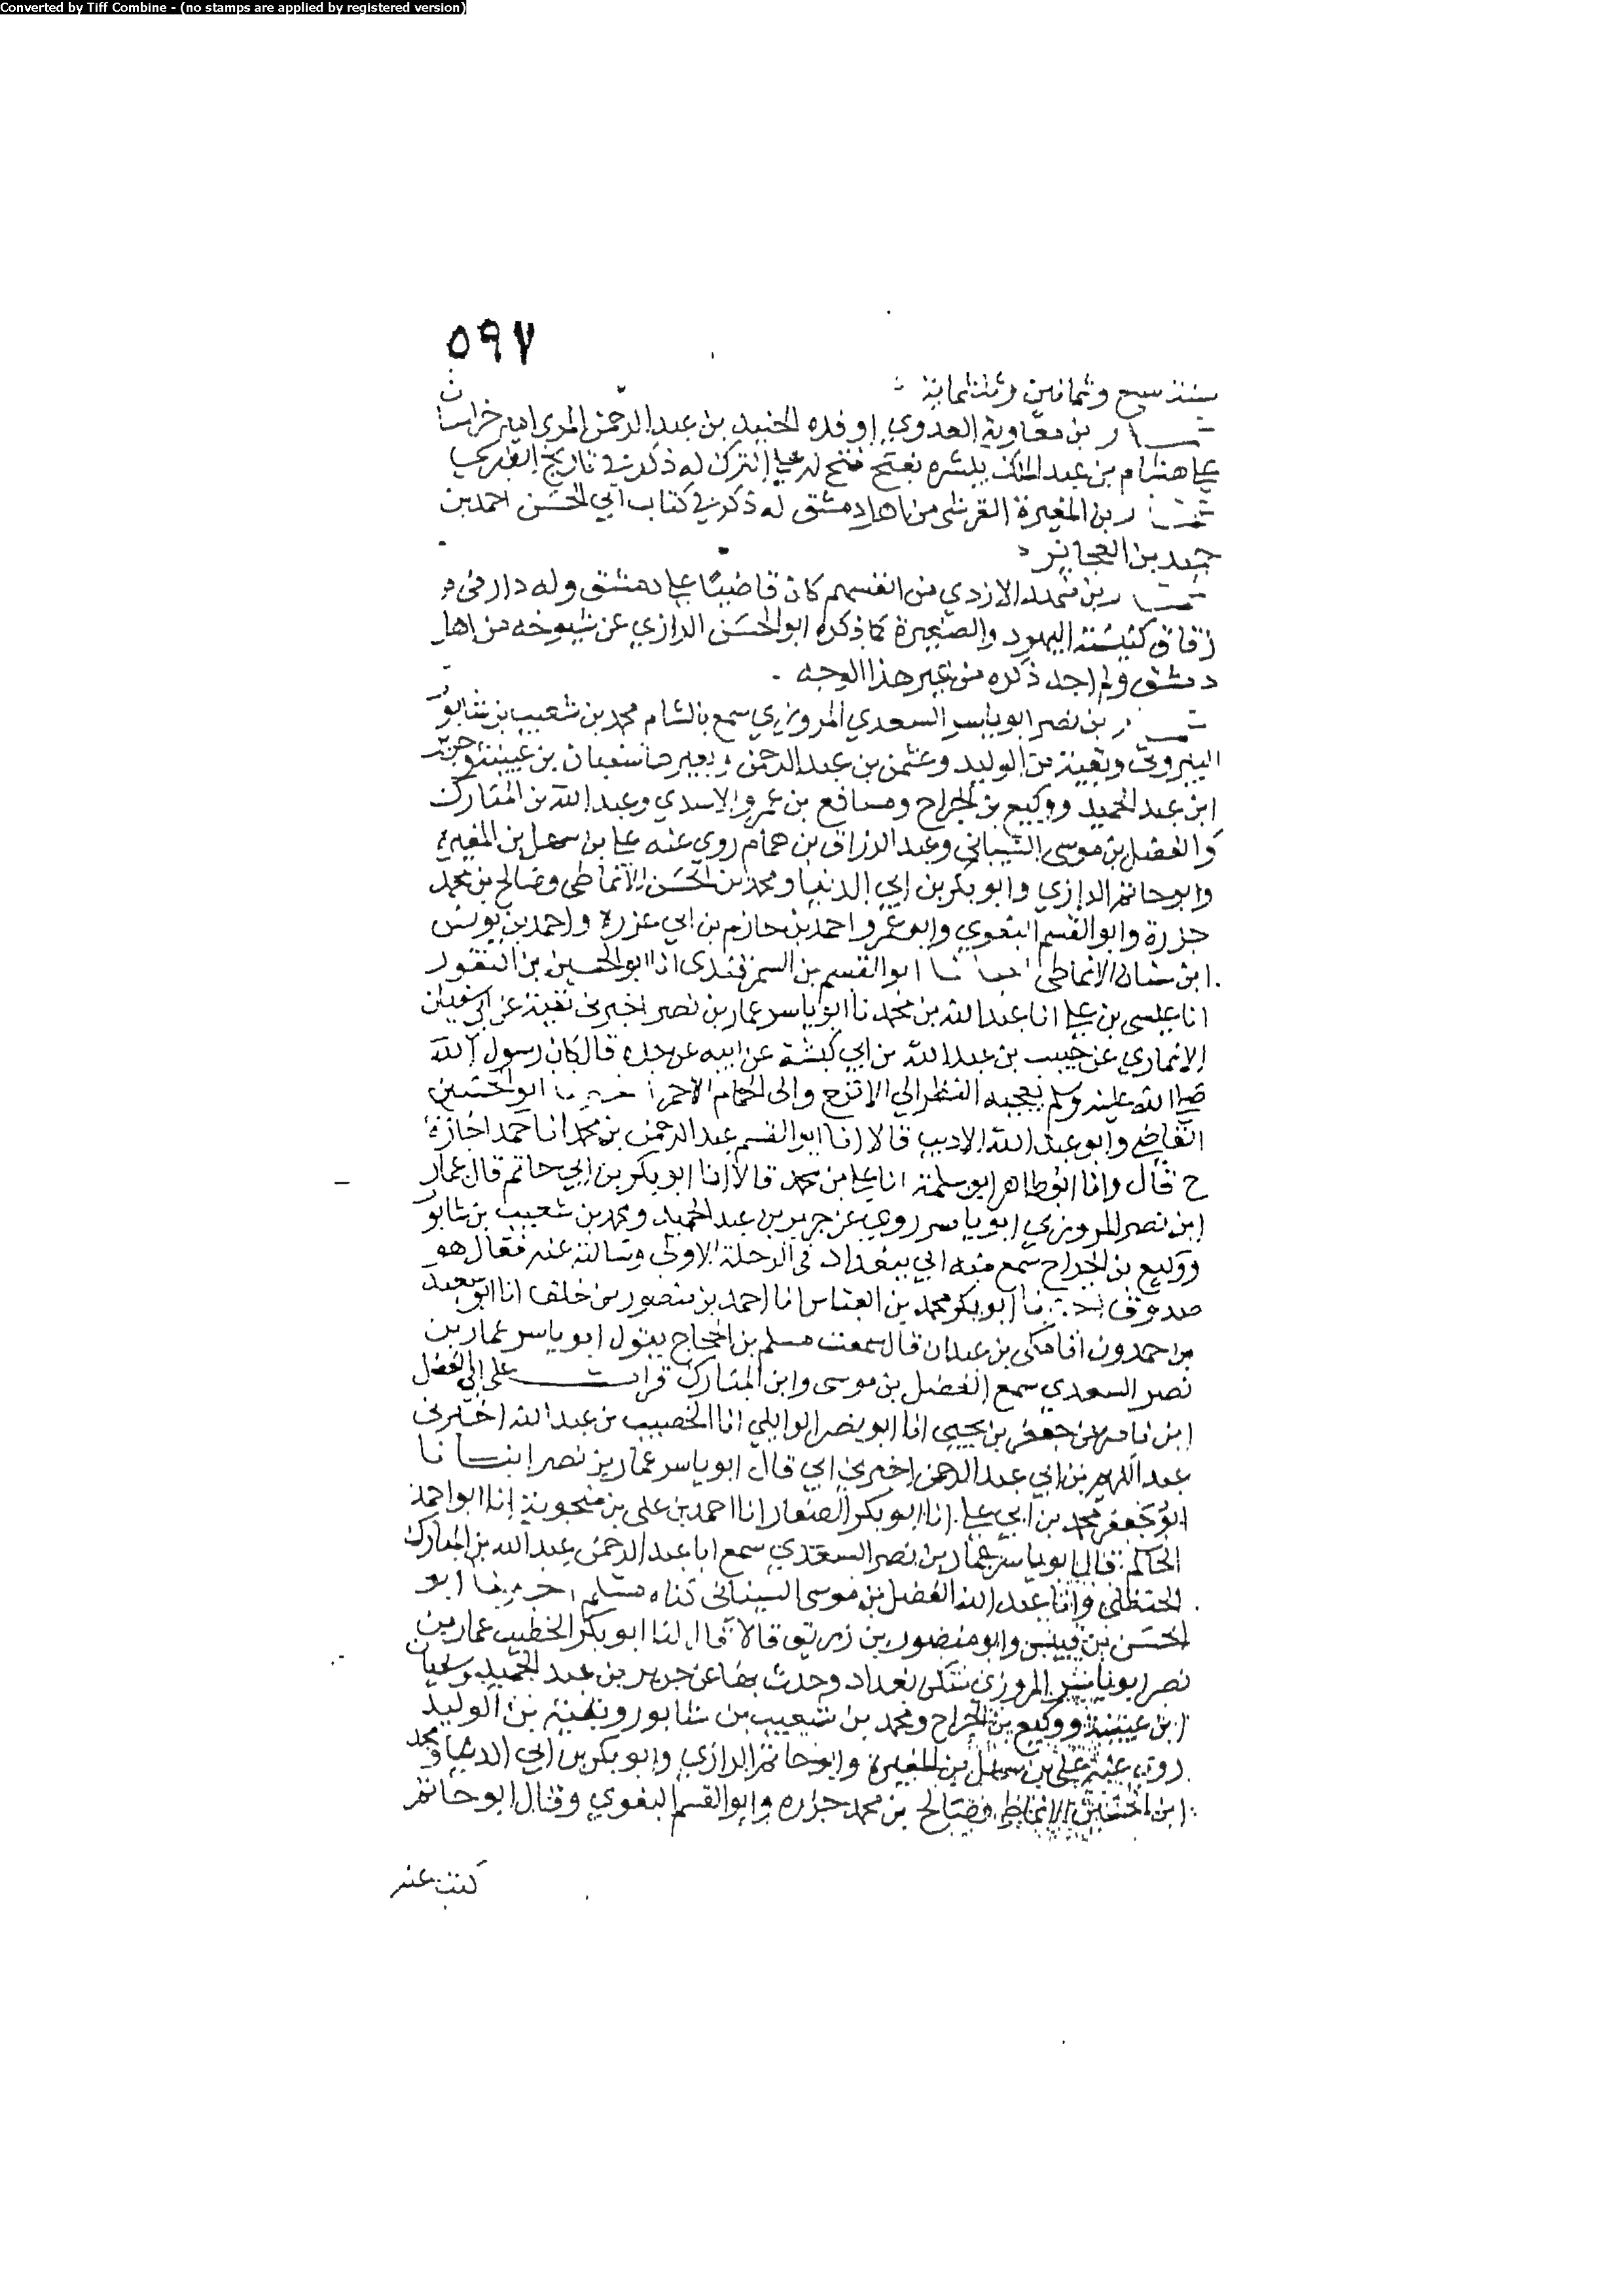 Converted by Tiff Combine - (no stamps are applied by registered version)
٥٩٧
سنة سبع وثمانين وثلثمائة
عمار بن معاوية العدوي اوفده الجنيد بن عبد الرحمن المري امير خراسان
على هشام بن عبد الملك يبشره بفتح فتح له على الترك له ذكر في تاريخ الطبري
بن المغيرة القرشي من اهل دمشق له ذكر في كتاب ابي الحسن احمد بن
حميد بن العجائز
بن محمد الازدي من انفسهم كان قاضيا على دمشق وله دار في
زقاق كنيسة اليهود والصغيرة كما ذكره ابو الحسن الرازي عن شيوخه من اهل
دمشق ولم اجد ذكره من غير هذا الوجه
عمار بن نصر ابو ياسر السعدي المروزي سمع بالشام محمد بن شعيب بن شابور
البيروتي وبقية بن الوليد وعثمن بن عبد الرحمن وبغيرها سفيان بن عيينة وجرير
ابن عبد الحميد ووكيع بن الجراح ومسافع بن عمرو الاسدي وعبد الله بن المبارك
والفضل بن موسى الشيباني وعبد الرزاق بن همام روى عنه علي بن سهل بن المغيرة
وابو حاتم الرازي وابو بكر بن ابي الدنيا ومحمد بن الحسن الانماطي وصالح بن محمد
جزرة وابو القسم البغوي وابو عمرو احمد بن حازم بن ابي عزرة واحمد بن يونس
ابن سنان الانماطي اخبرنا ابو القسم بن السمرقندي انا ابو الحسين بن النقور
انا عيسى بن علي انا عبد الله بن محمد نا ابو ياسر عمار بن نصر اخبرني بقية عن ابي سفيان
الانماري عن حبيب بن عبد الله بن ابي كبشة عن ابيه عن جده قال كان رسول الله
صلى الله عليه وسلم يعجبه النظر الى الاترج والى الحمام الاحمر اخبرنا ابو الحسين
القاضي وابو عبد الله الاديب قالا انا ابو القسم عبد الرحمن بن محمد انا حمد اجازة
ح قال وانا ابو طاهر بن سلمة انا علي بن محمد قالا انا ابو بكر بن ابي حاتم قال عمار
ابن نصر المروزي ابو ياسر روى عن جرير بن عبد الحميد ومحمد بن شعيب بن شابور
ووكيع بن الجراح سمع منه ابي ببغداد في الرحلة الاولى وسالته عنه فقال هو
صدوق اخبرنا ابو بكر محمد بن العباس انا احمد بن منصور بن خلف انا ابو سعيد
بن حمدون انا مكي بن عبدان قال سمعت مسلم بن الحجاج يقول ابو ياسر عمار بن
نصر السعدي سمع الفضل بن موسى وابن المبارك قرات على ابي الفضل
ابن ناصر عن جعفر بن يحيى انا ابو نصر الوايلي انا الخصيب بن عبد الله اخبرني
عبد الكريم بن ابي عبد الرحمن اخبرني ابي قال ابو ياسر عمار بن نصر انبانا
ابو جعفر محمد بن ابي علي انا ابو بكر الصفار انا احمد بن علي بن منجوية انا ابو احمد
الحاكم قال ابو ياسر عمار بن نصر السعدي سمع ابا عبد الرحمن عبد الله بن المبارك
الحنظلي وابا عبد الله الفضل بن موسى السيناني كناه مسلم اخبرنا ابو
الحسن بن قبيس وابو منصور بن زريق قالا قال لنا ابو بكر الخطيب عمار بن
نصر ابو ياسر المروزي سكن بغداد وحدث بها عن جرير بن عبد الحميد وسفيان
ابن عيينة ووكيع بن الجراح ومحمد بن شعيب بن شابور وبقية بن الوليد
روى عنه علي بن سهل بن المغيرة وابو حاتم الرازي وابو بكر بن ابي الدنيا ومحمد
ابن الحسين الانماطي وصالح بن محمد جزره وابو القسم البغوي وقال ابو حاتم
كتبت عنه